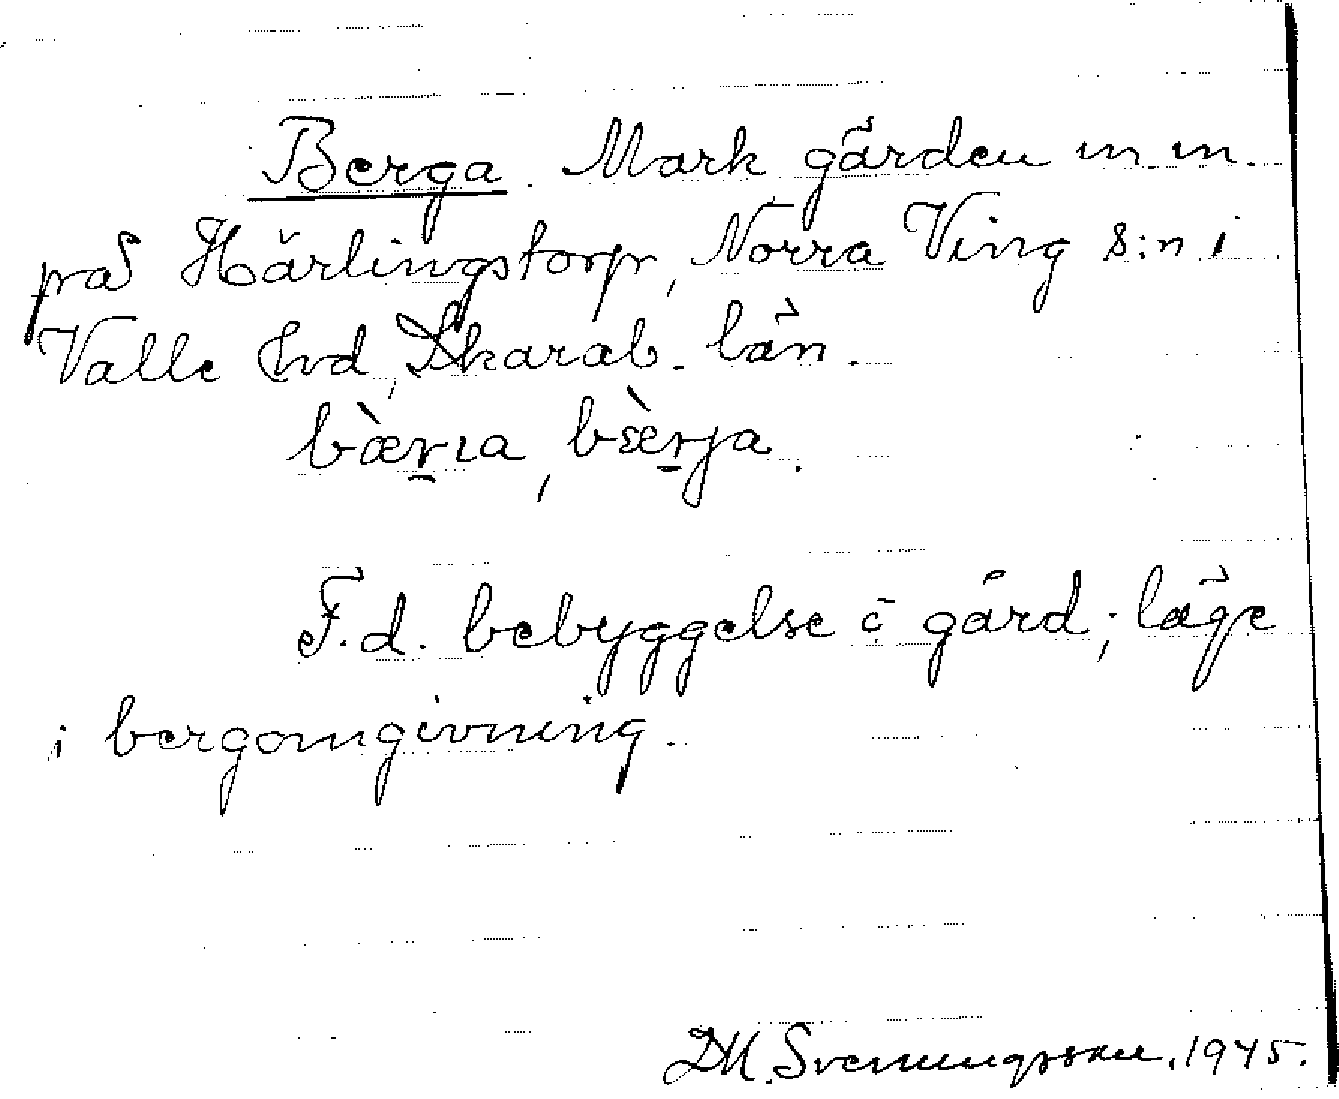 Berga. Mark gården m.m.
på Härlingstorp, Norra Ving s:n i
Valle hd, Skarab. län.
bæ̀r̠ıa, bæ̀r̠ja.
F.d. bebyggelse o gård; läge
i bergomgivning.
DM. Svenningsson. 1945.